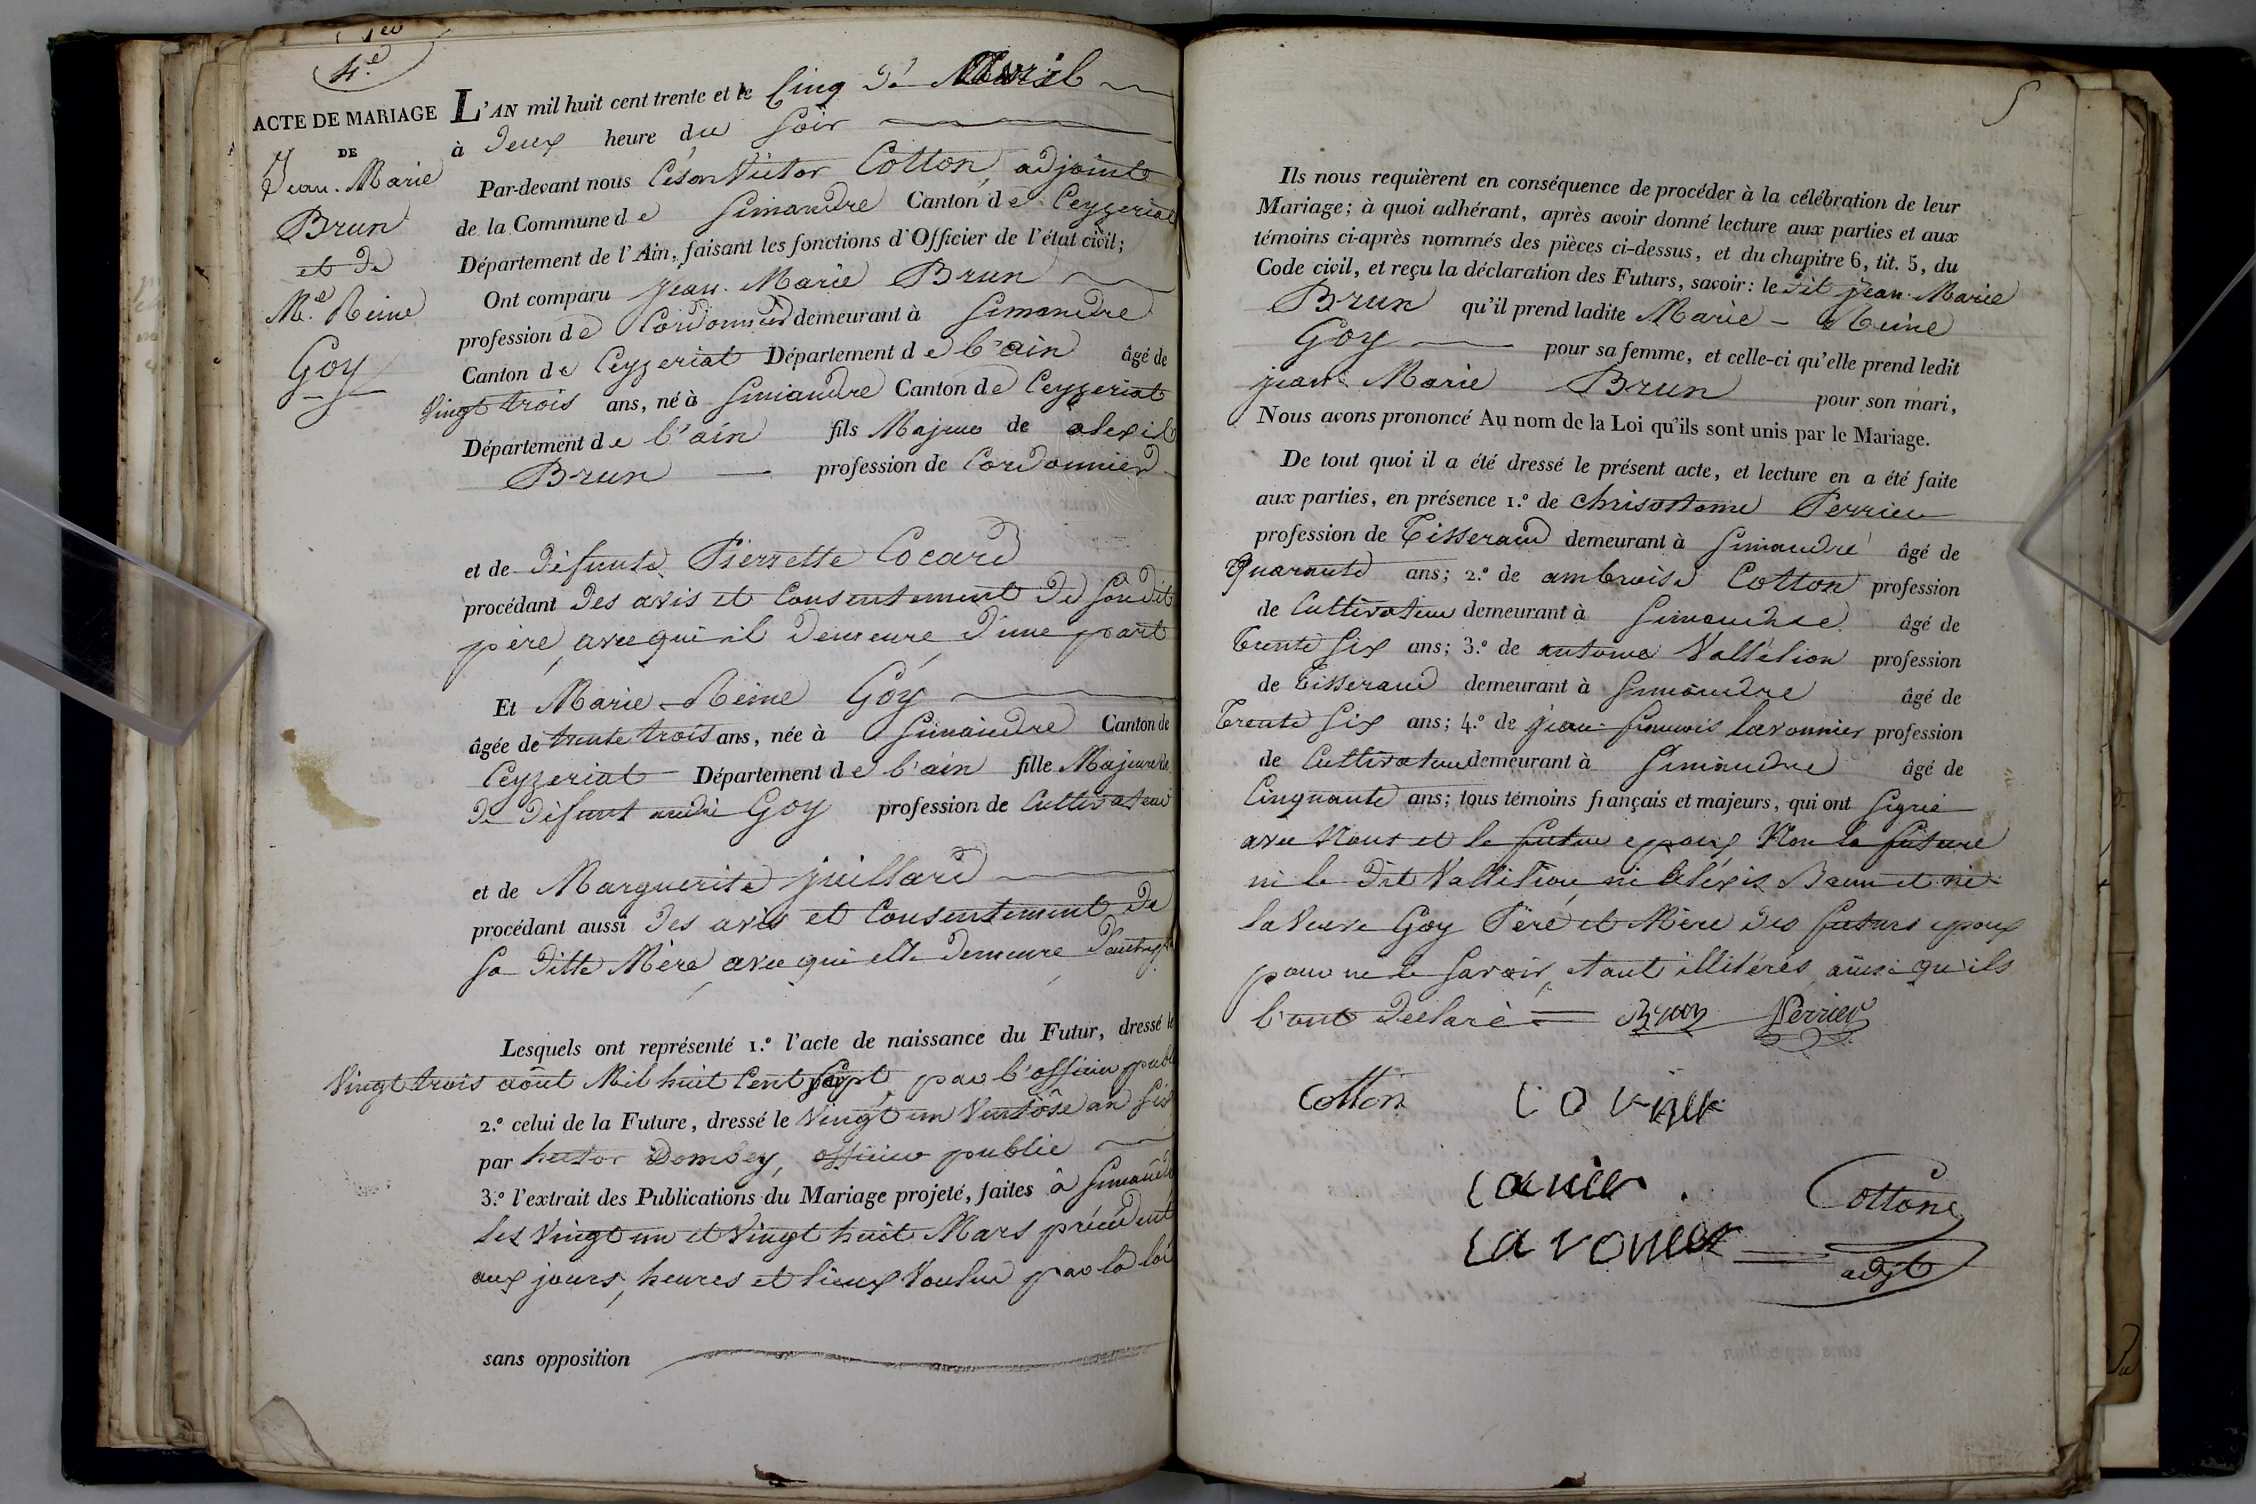 4.e
ACTE DE MARIAGE
DE
Jean-Marie
Brun
et de
M.e Reine
Goy
L'AN mil huit cent trente et le Cinq d'
à deux heure du Soir
Par-devant nous César Victor Cotton, adjoint
de la Commune de Simandre Canton de Ceyzeriat
Département de l'Ain, faisant les fonctions d'Officier de l'état civil;
Ont comparu jean-Marie Brun
profession de Cordonnier demeurant à Simandre
Canton de Ceyzeriat Département de l'ain âgé de
Vingt trois ans, né à Simandre Canton de Ceyzeriat
Département de l'ain fils Majeur de alexis
Brun profession de Cordonnier
et de défunte Pierrette Cocard
procédant des avis et Consentement de Son dit
père, avec qui il demeure, d'une part
Et Marie-Reine Goy
âgée de trente trois ans, née à Simandre Canton de
Ceyzeriat Département de l'ain fille Majeure de
de défunt andré Goy profession de Cultivateur
et de Marguerite juillard
procédant aussi des avis et Consentement de
Sa ditte Mère, avec qui elle demeure d'autre pt
Lesquels ont représenté 1.º l'acte de naissance du Futur, dressé le
Vingt trois août Mil huit Cent Sept, par l'officier publ
2.º celui de la Future, dressé le Vingt un Ventôse an Six
par hector Dombey, officier public
3.º l'extrait des Publications du Mariage projeté, faites à Simandre
les Vingt un et Vingt huit Mars précédent
aux jours, heures et lieux Voulus par la loi
sans opposition
5
Ils nous requièrent en conséquence de procéder à la célébration de leur
Mariage; à quoi adhérant, après avoir donné lecture aux parties et aux
témoins ci-après nommés des pièces ci-dessus, et du chapitre 6, tit. 5, du
Code civil, et reçu la déclaration des Futurs, savoir: le dit jean-Marie
Brun qu'il prend ladite Marie-Reine
Goy pour sa femme, et celle-ci qu'elle prend ledit
jean Marie Brun pour son mari,
Nous avons prononcé Au nom de la Loi qu'ils sont unis par le Mariage.
De tout quoi il a été dressé le présent acte, et lecture en a été faite
aux parties, en présence 1.º de chrisostome Perrier
profession de Tisserand demeurant à Simandre âgé de
Quarante ans; 2.º de ambroise Cotton profession
de Cultivateur demeurant à Simandre âgé de
Trente Six ans; 3.º de antoine Vallélion profession
de Tisserand demeurant à Simandre âgé de
Trente Six ans; 4.º de jean-francois lavonnier profession
de Cultivateur demeurant à Simandre âgé de
Cinquante ans; tous témoins français et majeurs, qui ont Signé
avec Nous et le futur epoux Non la future
ni le dit Vallélion, ni Aléxis Brun et ni
la Veuve Goy Père et Mère des futurs epoux
pour ne le Savoir, étant illitérés, ainsi qu'ils
l'ont déclaré = Brun Perrier
Cotton
Cotton
adjt